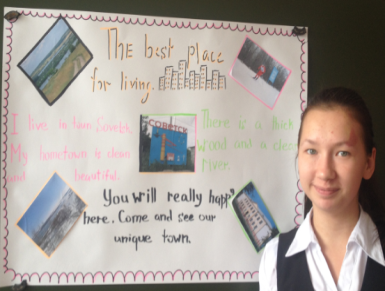 The best place
for living.
I live in town Sovetsk.
My hometown is clean
and beautiful.
СОВЕТСК
There is a thick
wood and a clear
river.
You will really happy
here. Come and see our
unique town.